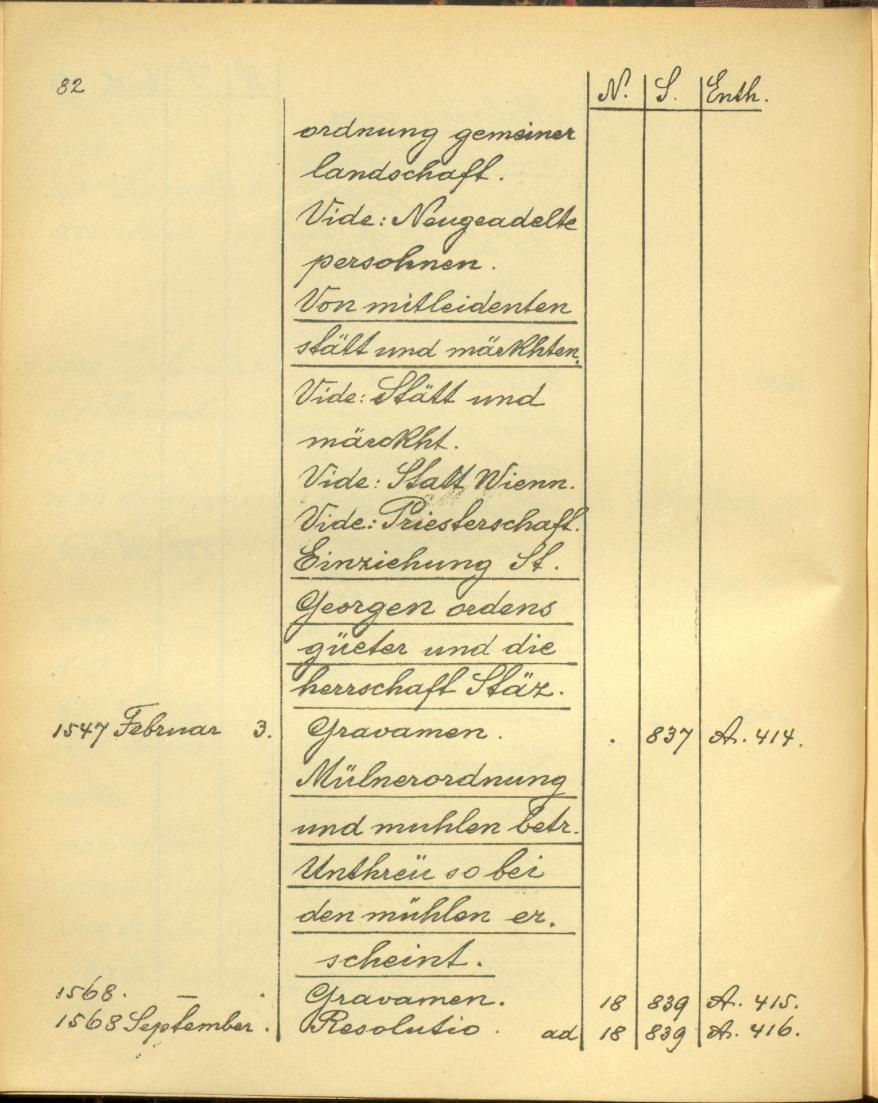 82 N. S. Enth.
ordnung gemeiner
landschaft.
Vide: Neugeadelte
persohnen.
Von mitleidenten
stätt und märkhten.
Vide: Stätt und
märckht.
Vide: Statt Wienn.
Vide: Priesterschaft.
Einziehung St.
Georgen ordens
güeter und die
herrschaft Stäz.
1547 Februar 3. Gravamen. . 837 A. 414.
Mülnerordnung
und muhlen betr.
Unthreü so bei
den mühlen er.
scheint.
1568. — . Gravamen. 18 839 A. 415.
1568 September . Resolutio . ad 18 839 A. 416.